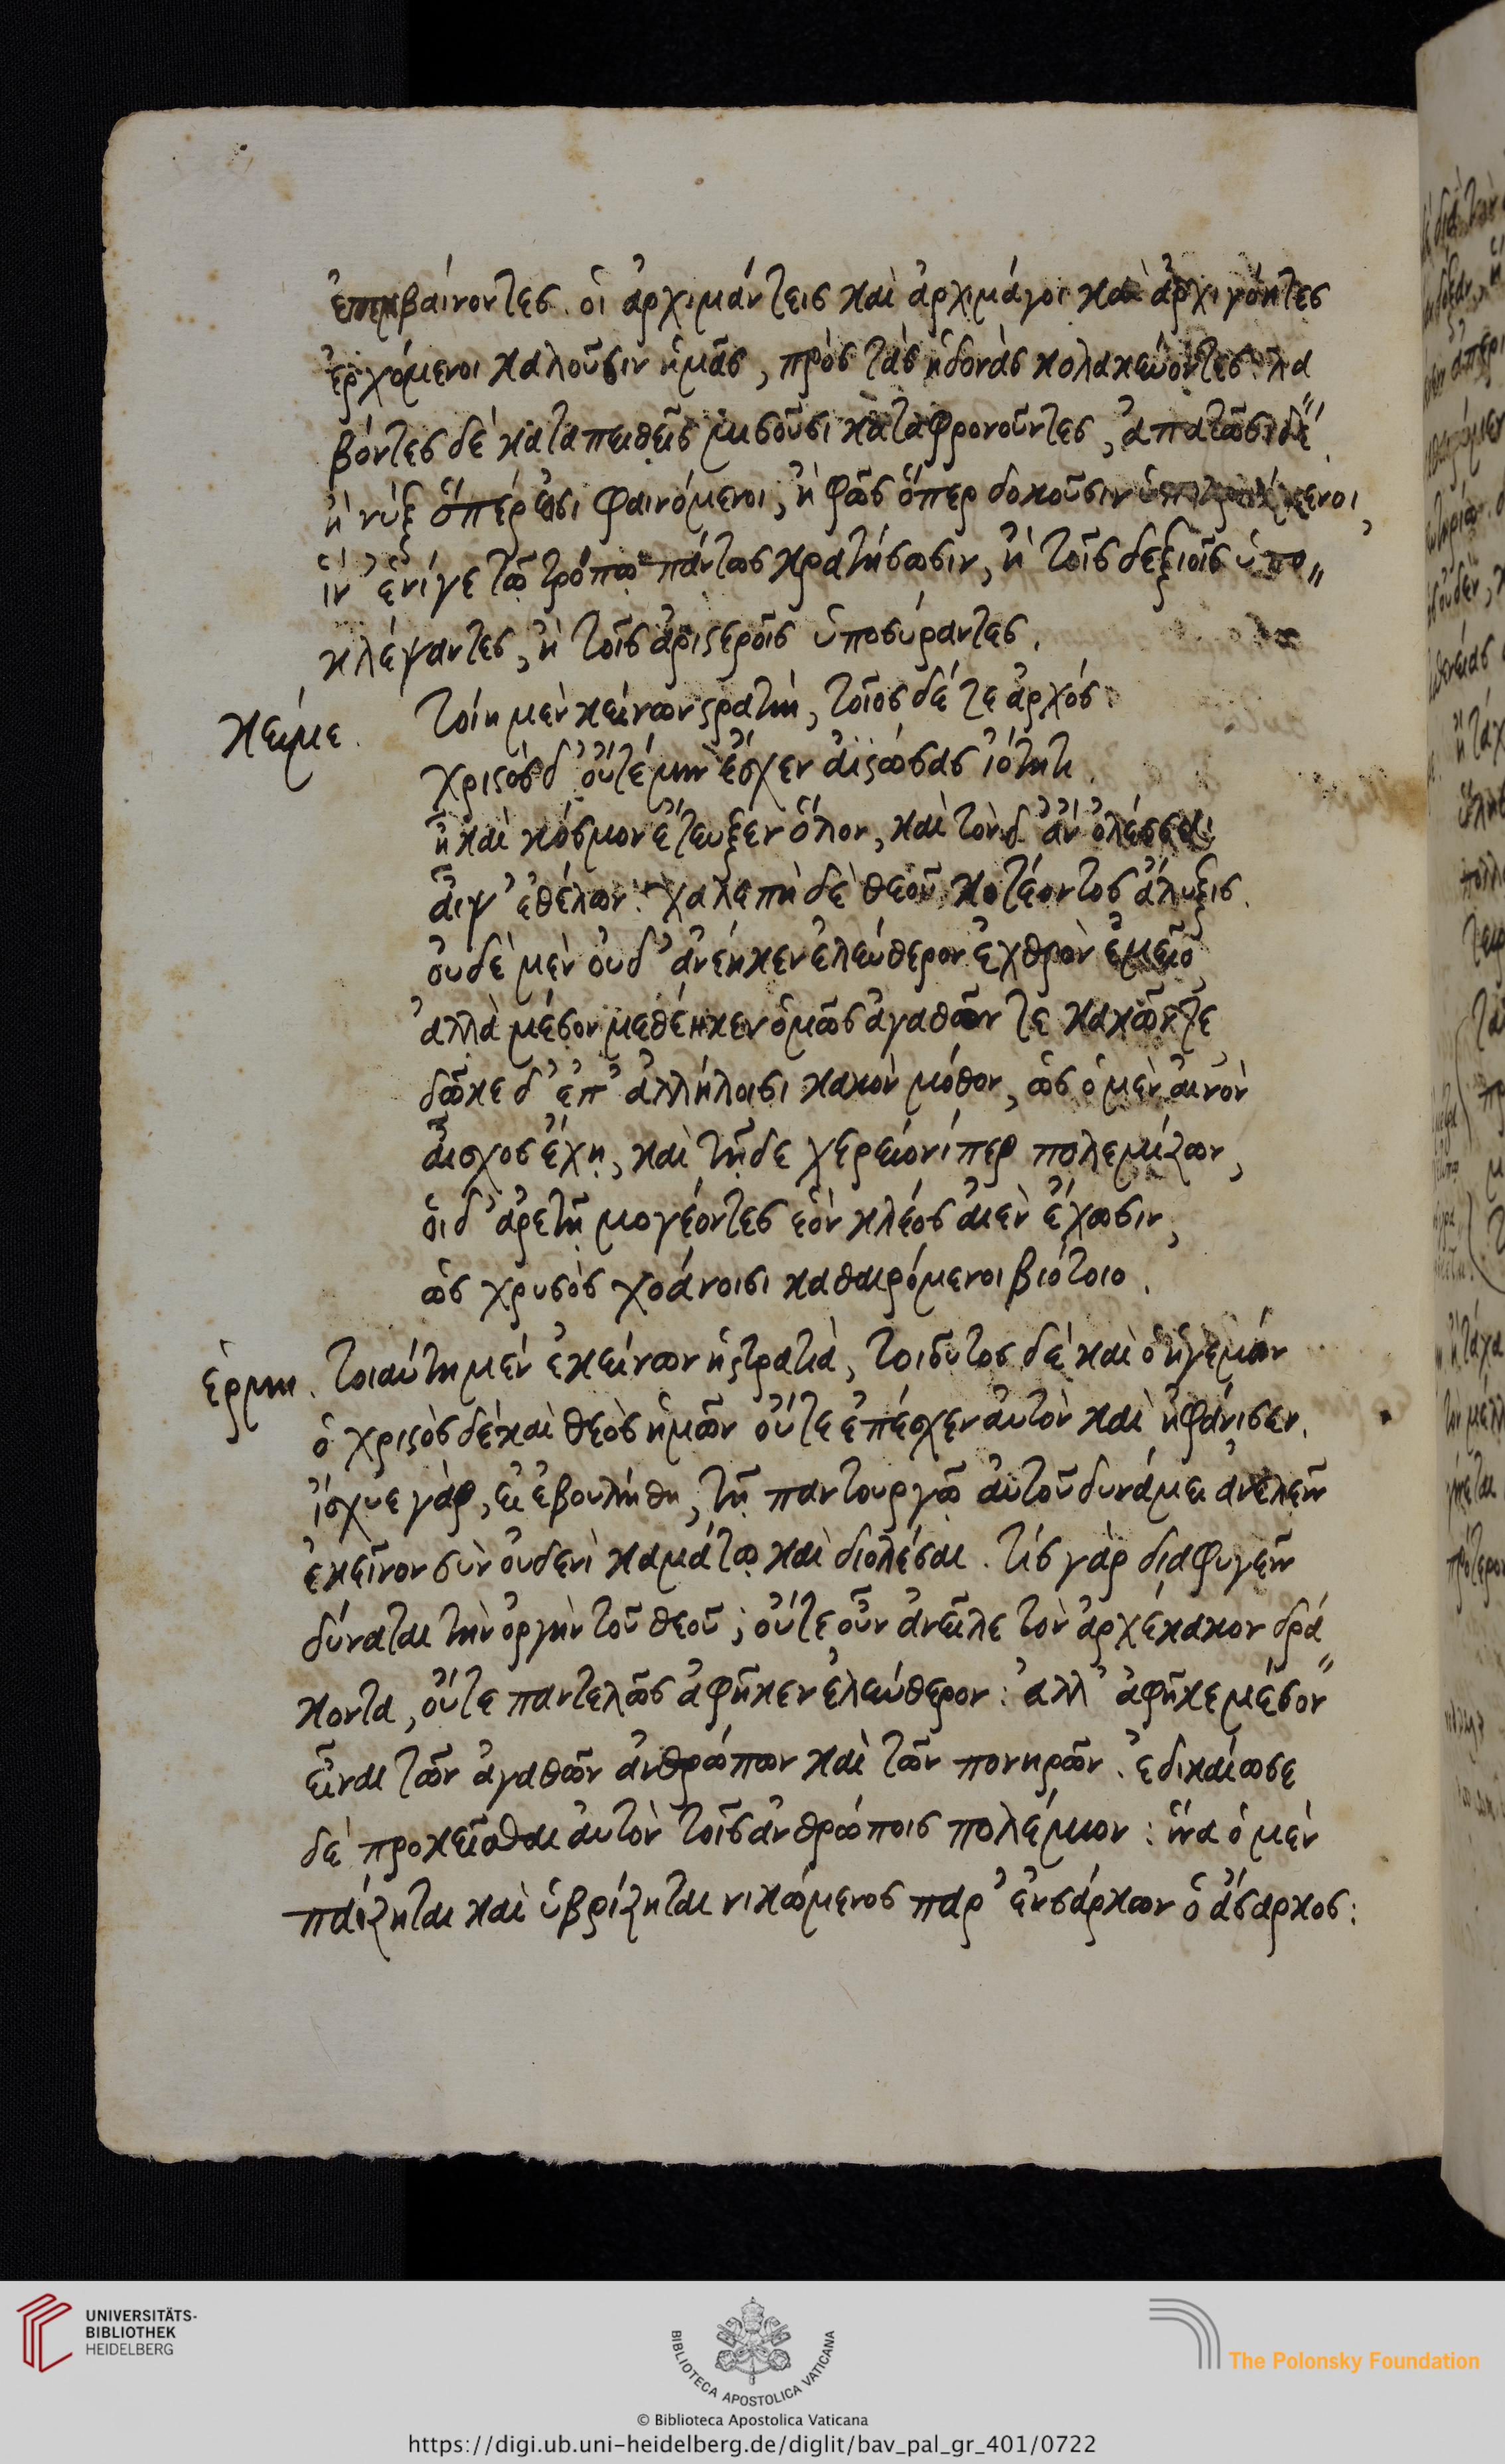 ἐπεμβαίνοντες. οἱ ἀρχιμάντεις καὶ ἀρχιμάγοι καὶ ἀρχιγόητες
ἐρχόμενοι καλοῦσιν ἡμᾶς, πρὸς τὰς ἡδονὰς κολακεύοντες. λα〃
βόντες δὲ καταπειθεῖς μισοῦσι καταφρονοῦντες, ἀπατῶσι δὲ
ἢ νὺξ ὅπέρ εἰσι φαινόμενοι, ἢ φῶς ὅπερ δοκοῦσιν
ἵν' ἑνί γε τῷ τρόπῳ πάντως κρατήσωσιν, ἢ τοῖς δεξιοῖς ὑπο〃
κλέψαντες, ἢ τοῖς ἀριστεροῖς ὑποσύραντες.
κείμε. τοίη μὲν κείνων στρατιὴ, τοῖος δέ τε ἀρχός.
χριστὸς δ' οὔτέ μιν ἔσχεν ἀϊστώσας ἰότητι.
ᾗ καὶ κόσμον ἔτευξεν ὅλον, καὶ τὸν δ' ἂν ὀλέσσαι
αἶψ' ἐθέλων. χαλεπὴ δὲ θεοῦ κοτέοντος ἄλυξις.
οὐδὲ μὲν οὐδ' ἀνέηκεν ἐλεύθερον ἐχθρὸν ἐμεῖο
ἀλλὰ μέσον μεθέηκεν ὁμῶς ἀγαθῶν τε κακῶν τε
δῶκε δ' ἐπ' ἀλλήλοισι κακὸν μόθον, ὡς ὁ μὲν αἰνὸν
αἶσχος ἔχῃ, καὶ τῇδε χερείονί περ πολεμίζων,
οἱ δ' ἀρετῇ μογέοντες ἑὸν κλέος αἰὲν ἔχωσιν,
ὡς χρυσὸς χοάνοισι καθαιρόμενοι βιότοιο.
ἑρμη. τοιαύτη μὲν ἐκείνων ἡ στρατιὰ, τοιοῦτος δὲ καὶ ὁ ἡγεμών
ὁ χριστὸς δὲ καὶ θεὸς ἡμῶν οὔτε ἐπέσχεν αὐτὸν καὶ ἠφάνισεν.
ἴσχυε γὰρ, εἰ ἐβουλήθη, τῇ παντουργῷ αὐτοῦ δυνάμει ἀνελεῖν
ἐκεῖνον σὺν οὐδενὶ καμάτῳ καὶ διολέσαι. τίς γὰρ διαφυγεῖν
δύναται τὴν ὀργὴν τοῦ θεοῦ; οὔτε οὖν ἀνεῖλε τὸν ἀρχέκακον δρά〃
κοντα, οὔτε παντελῶς ἀφῆκεν ἐλεύθερον: ἀλλ' ἀφῆκε μέσον
εἶναι τῶν ἀγαθῶν ἀνθρώπων καὶ τῶν πονηρῶν. ἐδικαίωσε
δὲ προκεῖσθαι αὐτὸν τοῖς ἀνθρώποις πολέμιον: ἵνα ὁ μὲν
παίζηται καὶ ὑβρίζηται νικώμενος παρ' ἐνσάρκων ὁ ἄσαρκος:
UNIVERSITÄTS-
BIBLIOTHEK
HEIDELBERG
BIBLIOTECA APOSTOLICA VATICANA
The Polonsky Foundation
© Biblioteca Apostolica Vaticana
https://digi.ub.uni-heidelberg.de/diglit/bav_pal_gr_401/0722